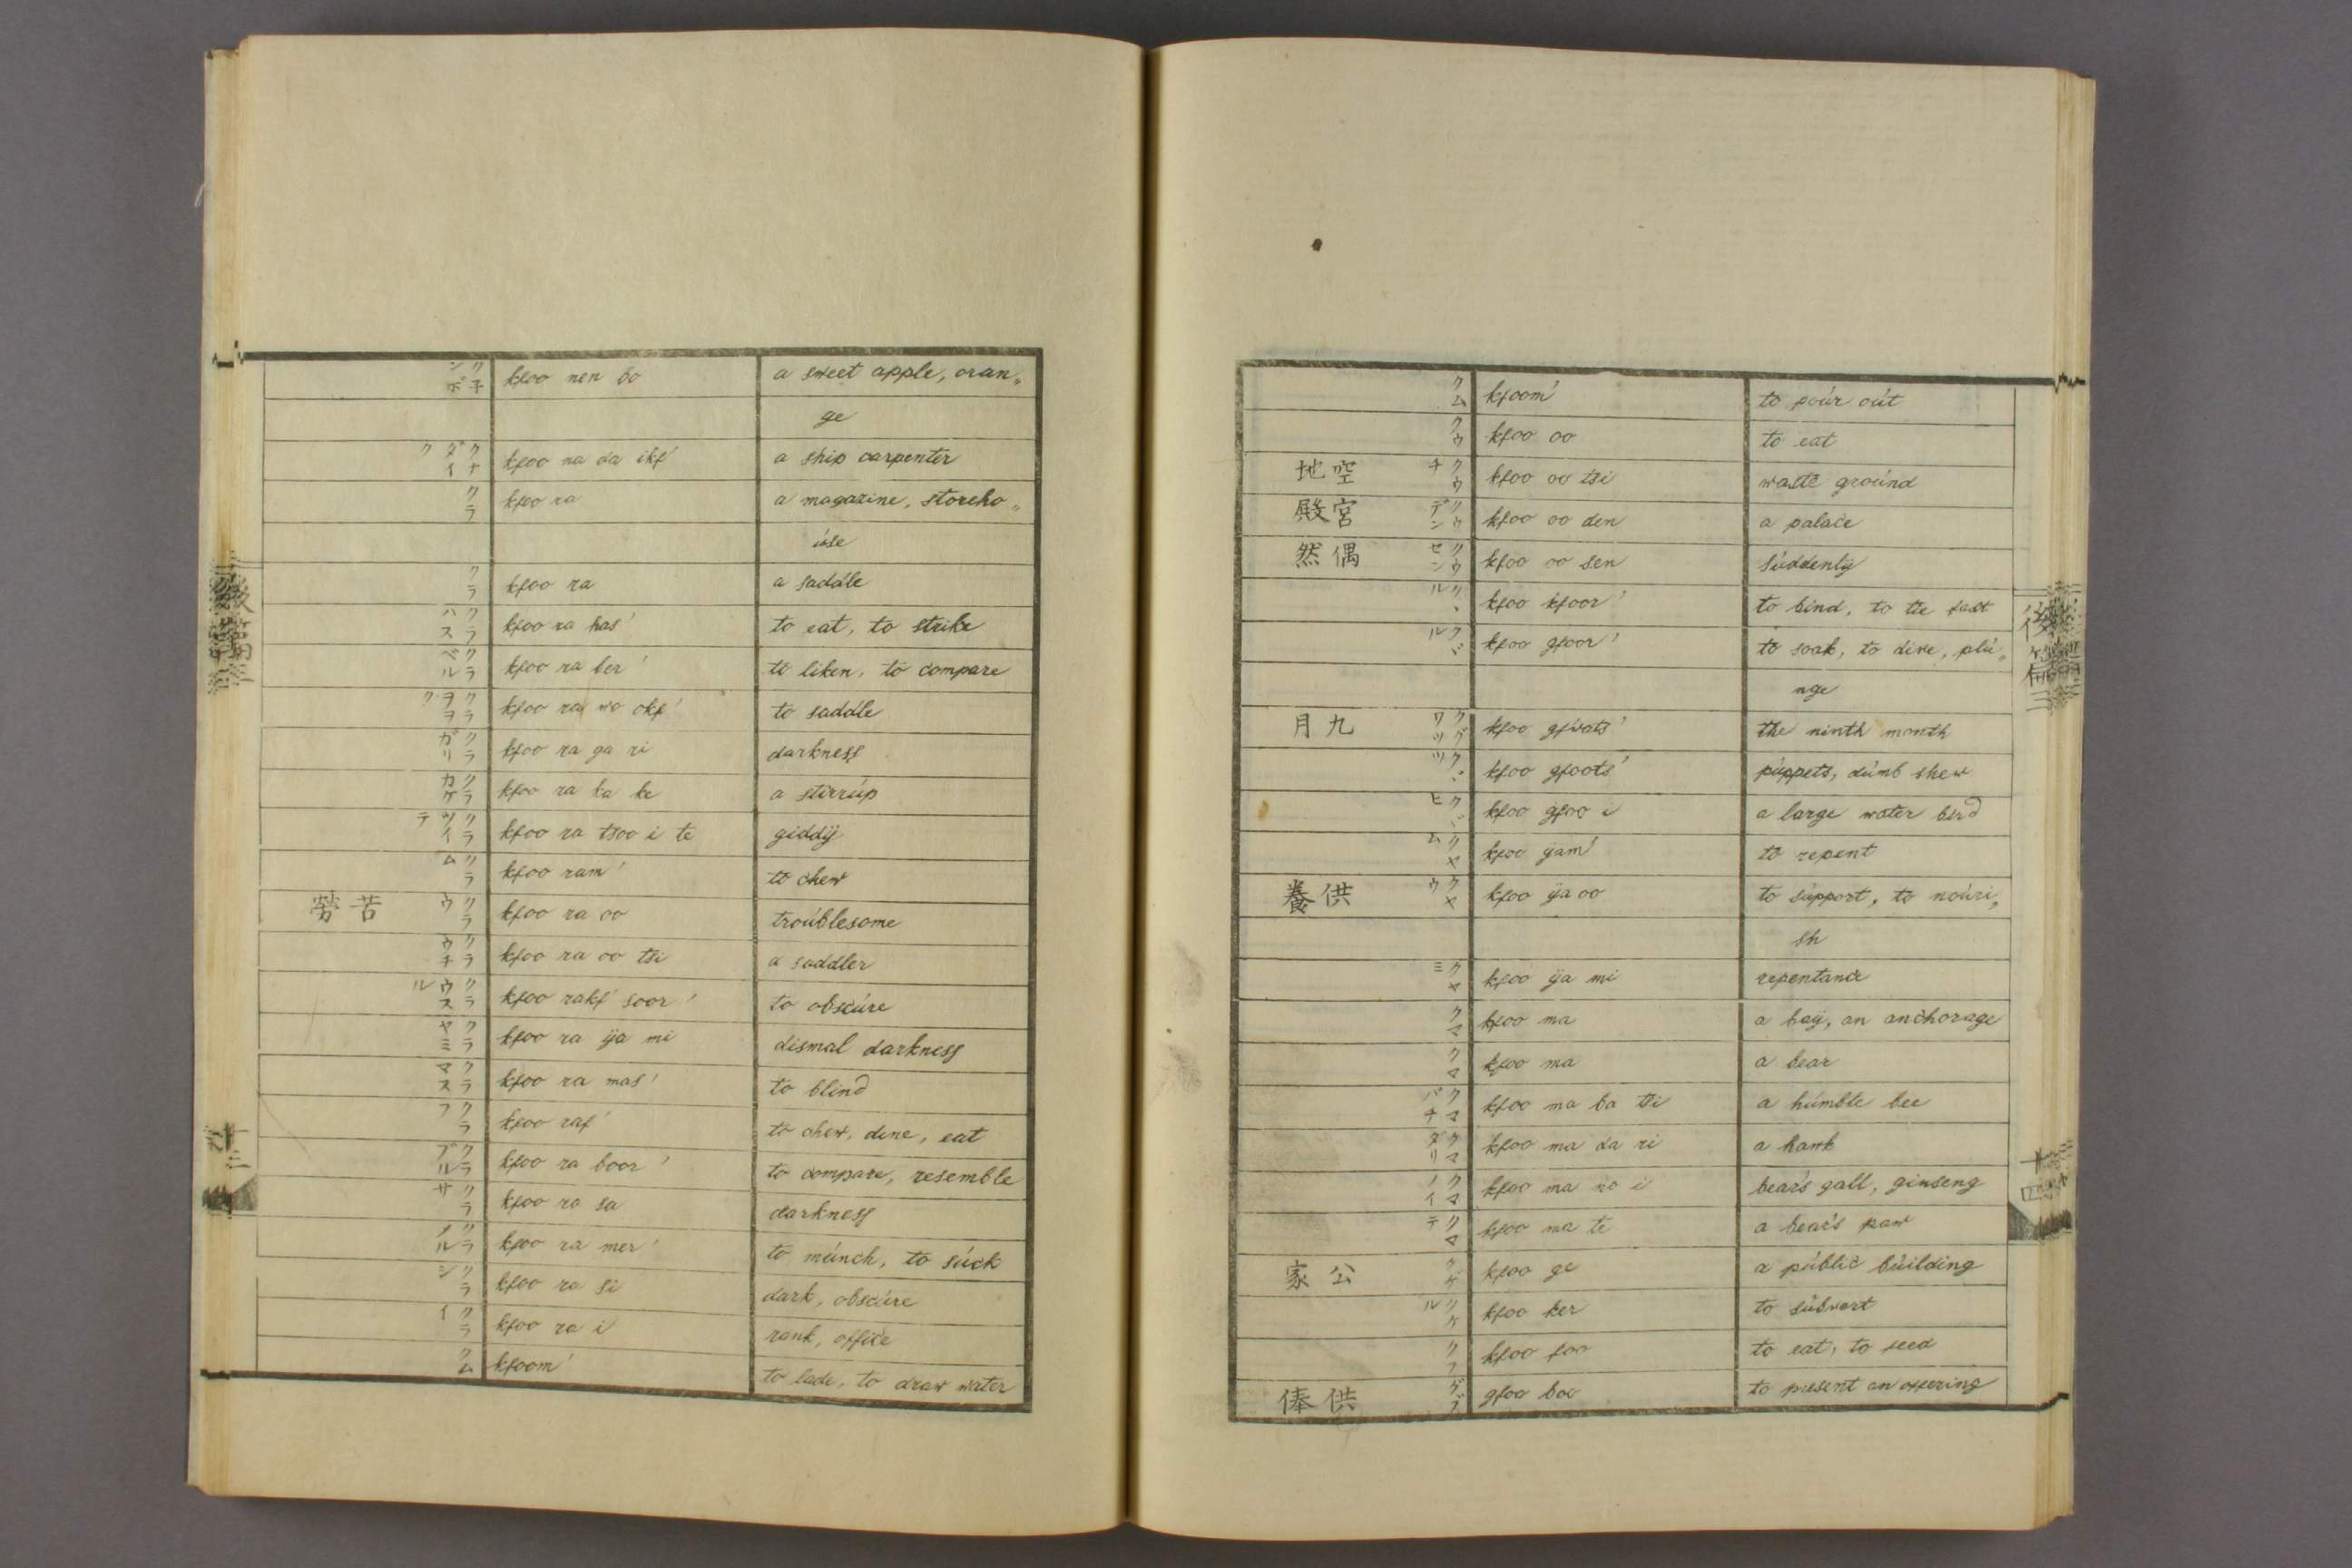 クネンボ kfoo nen bo a sweet apple, oran„
ge
クナダイク kfoo na da ikf' a ship carpenter
クラ kfoo ra a magazine, storeho„
úse
クラ kfoo ra a saddle
クラハス kfoo ra has' to eat, to strike
クラベル kfoo ra ber' to liken, to compare
クラヲヲク kfoo ra wo okf' to saddle
クラガリ kfoo ra ga ri darkness
クラカケ kfoo ra ka ke a stirrúp
クラツイテ kfoo ra tsoo i te giddÿ
クラム kfoo ram' to chew
勞苦 クラウ kfoo ra oo troúblesome
クラウチ kfoo ra oo tsi a saddler
クラウスル kfoo rakf' soor' to obscúre
クラヤミ kfoo ra ÿa mi dismal darkness
クラマス kfoo ra mas' to blind
クラフ kfoo raf' to chew, dine, eat
クラブル kfoo ra boor' to compare, resemble
クラサ kfoo ra sa darkness
クラメル kfoo ra mer' to múnch, to súck
クラシ kfoo ra si dark, obscúre
クライ kfoo ra i rank, office
クム kfoom' to lade, to draw water
クム kfoom' to poúr oút
クウ kfoo oo to eat
地空 クウチ kfoo oo tsi waste groúnd
殿宮 クウデン kfoo oo den a palace
然偶 クウセン kfoo oo sen súddenlÿ
クヽル kfoo kfoor' to bind, to tie fast
クヾル kfoo gfoor' to soak, to dive, plú„
nge
月九 クグワツ kfoo gfwats' the ninth month
クヾツ kfoo gfoots' púppets, dúmb shew
クヾヒ kfoo gfoo i a large water bird
クヤム kfoo ÿam' to repent
養供 クヤウ kfoo ÿa oo to súpport, to noúri„
sh
クヤミ kfoo ÿa mi repentance
クマ kfoo ma a baÿ, an anchorage
クマ kfoo ma a bear
クマバチ kfoo ma ba tsi a húmble bee
クマダリ kfoo ma da ri a hawk
クマノイ kfoo ma no i bear's gall, ginseng
クマテ kfoo ma te a bear's paw
家公 クゲ kfoo ge a públic búilding
クケル kfoo ker to súbvert
クフ kfoo foo to eat, to feed
俸供 グブ gfoo boo to present an offering
後篇